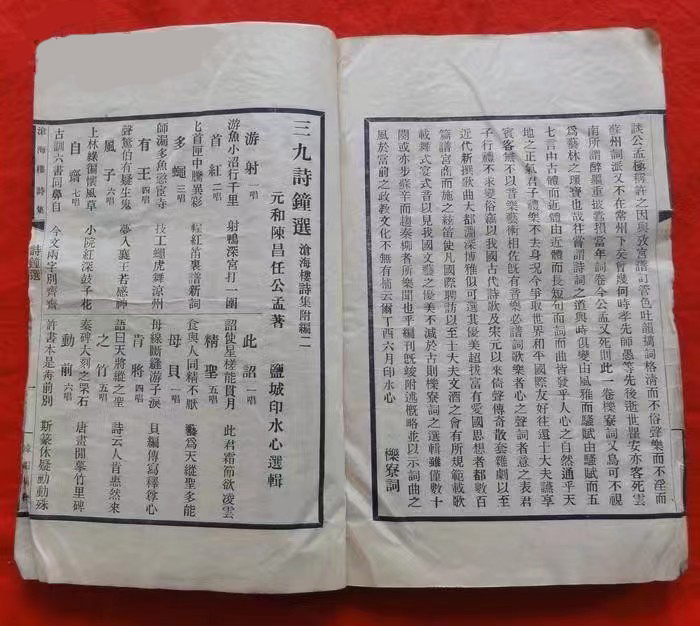 談公孟極稱許之因與致宮譜訂管色吐龍摛詞格清而不俗聲樂而不淫而
蘇州詞派又不在常州下矣曾幾何時孝先師愚等先後逝世瞿安亦客死雲
南所謂醉韻重披耆損當年詞卷今公孟又死則此一卷櫟寮詞又焉可不視
為藝林之瑰寶也哉往嘗謂詩詞之道與時俱變由風雅而騷賦由騷賦而五
七言由古體而近體由近體而長短句而詞而曲皆發乎人心之自然通乎天
地之正氣君子禮樂不去身況今爭取世界和平國際友好往還士大夫讌享
賓客無不以音樂藝術相佐既有音樂必譜詞歌樂者心之聲詞者意之表君
子行禮不求變俗瀛以我國古代詩歌及宋元以來倚聲傳奇散套雜劇以至
近代新撰歌曲夫都淵深博雅似可選其優美超拔富有愛國思想者都數百
篇譜宮商而施之絃笛使凡國際聘訪以至士大夫文酒之會有所規範載歌
載舞式宴式音以見我國文藝之優美不減於古則櫟寮詞之選輯雖僅數十
闋或亦步蘇辛而趨秦柳者所樂聞也乎編刊既竣附述慨略並以示詞曲之
風於當前之政教文化不無有補云爾丁酉六月印水心
櫟寮詞
三九詩鐘選 滄海樓詩集附編二
元和陳昌任公孟著 鹽城印水心選輯
游射 一唱
游魚小沼行千里 射鴨深宮打一圍
首紅 二唱
匕首匣中騰異彩 猩紅笛裏譜新詞
多蠅 三唱
師漏多魚微宦寺 技工蠅虎舞涼州
有王 四唱
聲驚伯有疑生鬼 夢入襄王若惑神
風子 六唱
上林綠徧懷風草 小院紅深鼓子花
自齋 七唱
古訓六書同鼻自 今文兩字別齊齋
此詔 一唱
詔使星槎能貫月 此君霜節欲凌雲
精聖 五唱
食與人同精不厭 藝為天縱聖多能
母貝 一唱
母線斷縫游子淚 貝編傳寫釋徐心
肯將 四唱
語曰天將縱之聖 詩云人肯惠然來
之竹 五唱
秦碑大刻之罘石 唐畫開摹竹里碑
動前 六唱
許書本是歬前別 斯篆休疑勭動殊
滄海樓詩集
詩鐘選
一